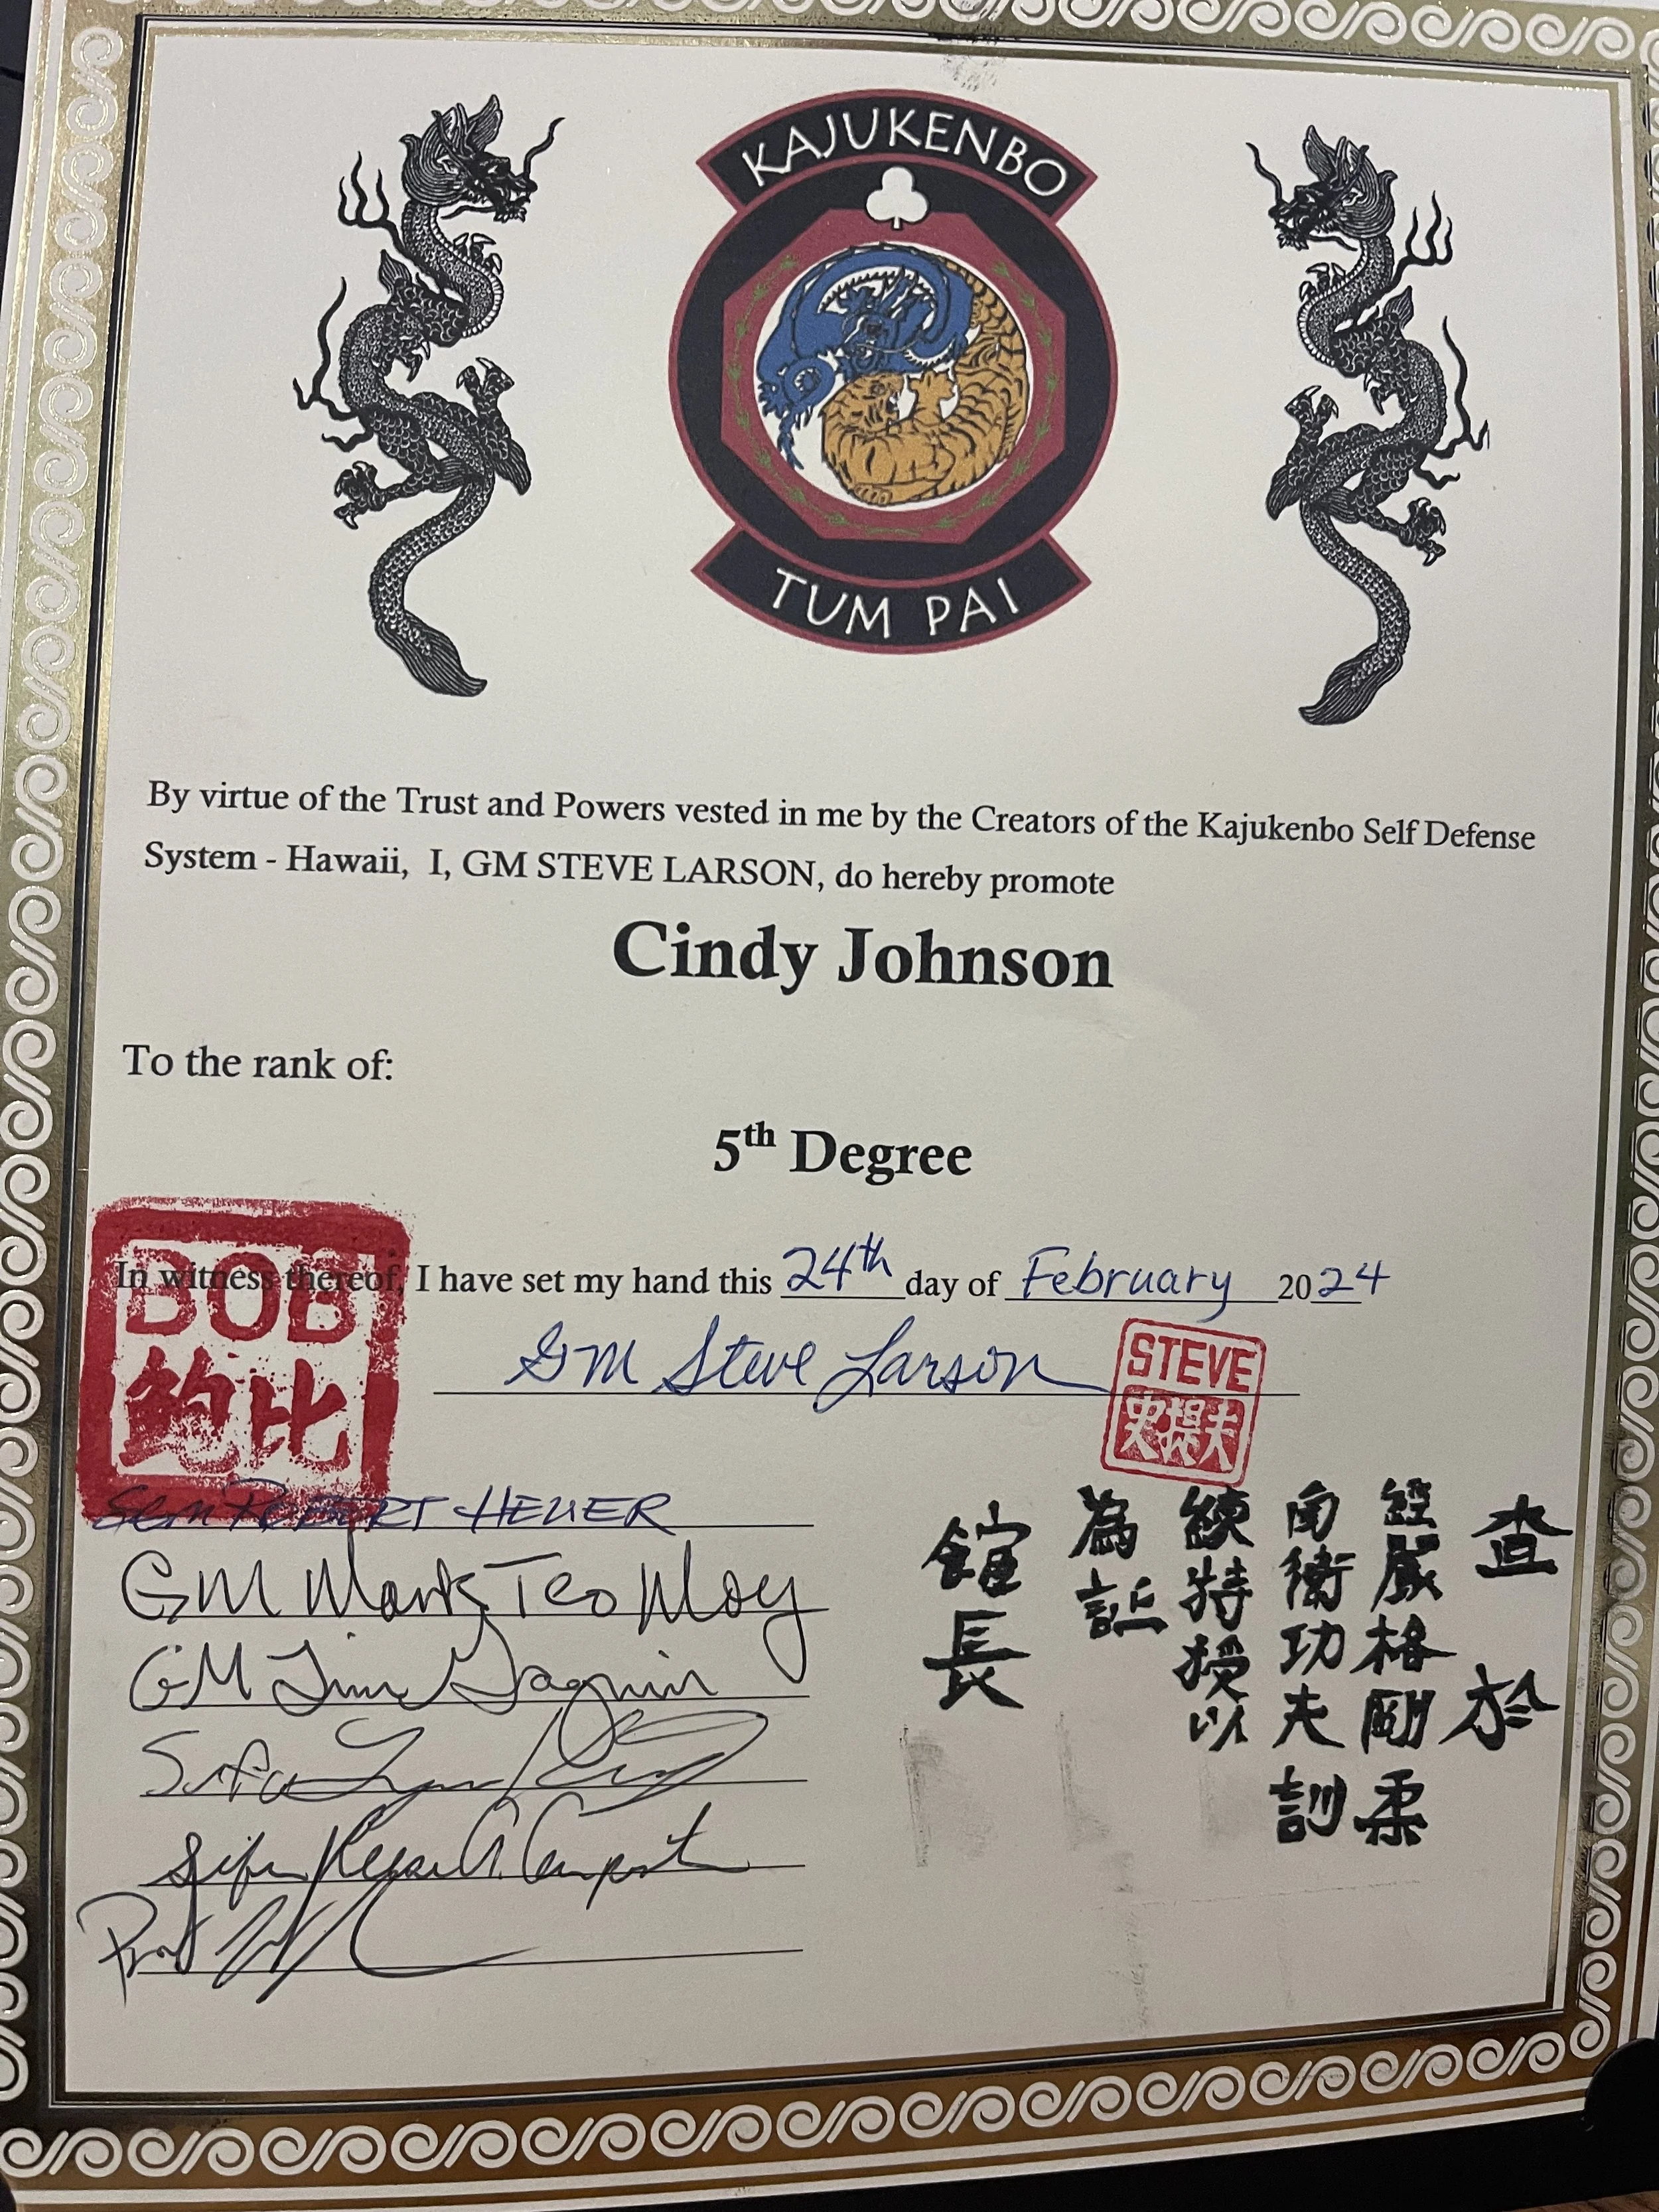 KAJUKENBO
TUM PAI
By virtue of the Trust and Powers vested in me by the Creators of the Kajukenbo Self Defense
System - Hawaii, I, GM STEVE LARSON, do hereby promote
Cindy Johnson
To the rank of:
5th Degree
In witness thereof, I have set my hand this 24th day of February 2024
GM Steve Larson
BOB
鲍比
STEVE
史提夫
SGM ROBERT HEUER
GM Mark Teo Moy
GM Jim
Sifu
Sifu
Prof
查於
經嚴格剛柔
衛功夫訓
練特授以
為証
館長